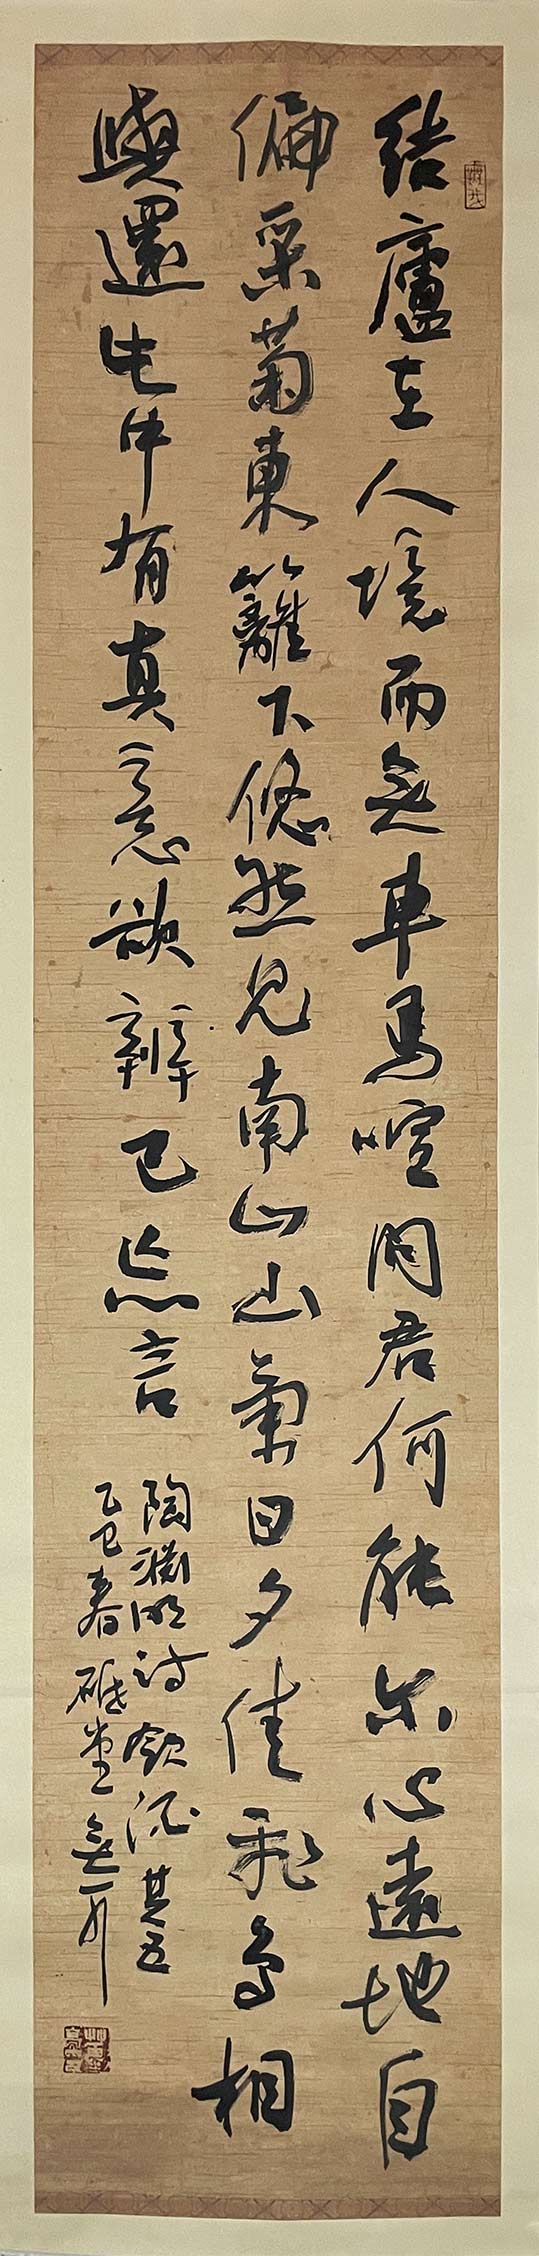 結廬在人境而無車馬喧問君何能尔心遠地自
偏采菊東籬下悠然見南山山氣日夕佳飛鳥相
與還此中有真意欲辨已忘言
陶淵明詩飲酒其五
乙巳春